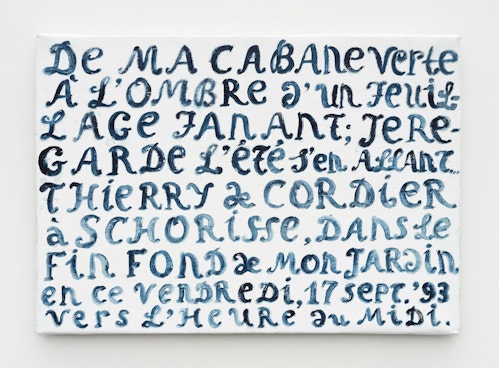 De MA CABANe verte
À L'OMBRe d'un FeuIL-
LAGE FANANT; JE Re-
GARDE L'éTé s'en ALLANT...
THIERRY de CORDIER
à SCHORISSE, DANS le
FIN FOND de MON JARDIN
en ce VENDREDI, 17 SEPT. '93
VERS L'HEURE du MIDI.